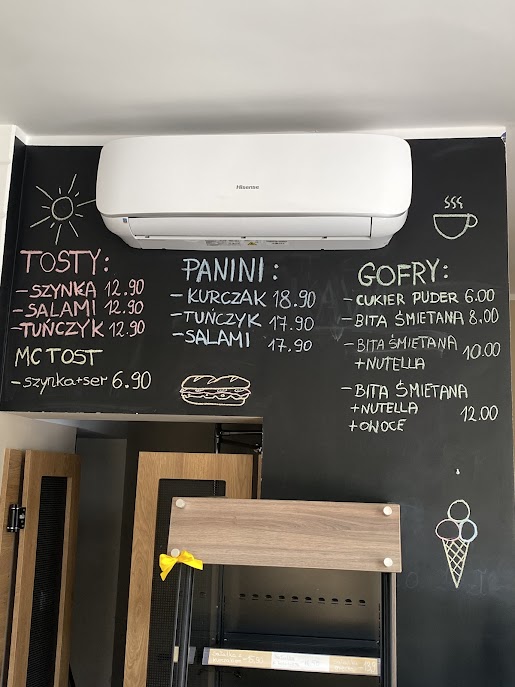 Hisense
TOSTY:
-SZYNKA 12.90
-SALAMI 12.90
-TUŃCZYK 12.90
MC TOST
-szynka+ser 6.90
PANINI:
-KURCZAK 18.90
-TUŃCZYK 17.90
-SALAMI 17.90
GOFRY:
-CUKIER PUDER 6.00
-BITA ŚMIETANA 8.00
-BITA ŚMIETANA
+NUTELLA 10.00
-BITA ŚMIETANA
+NUTELLA 12.00
+OWOCE